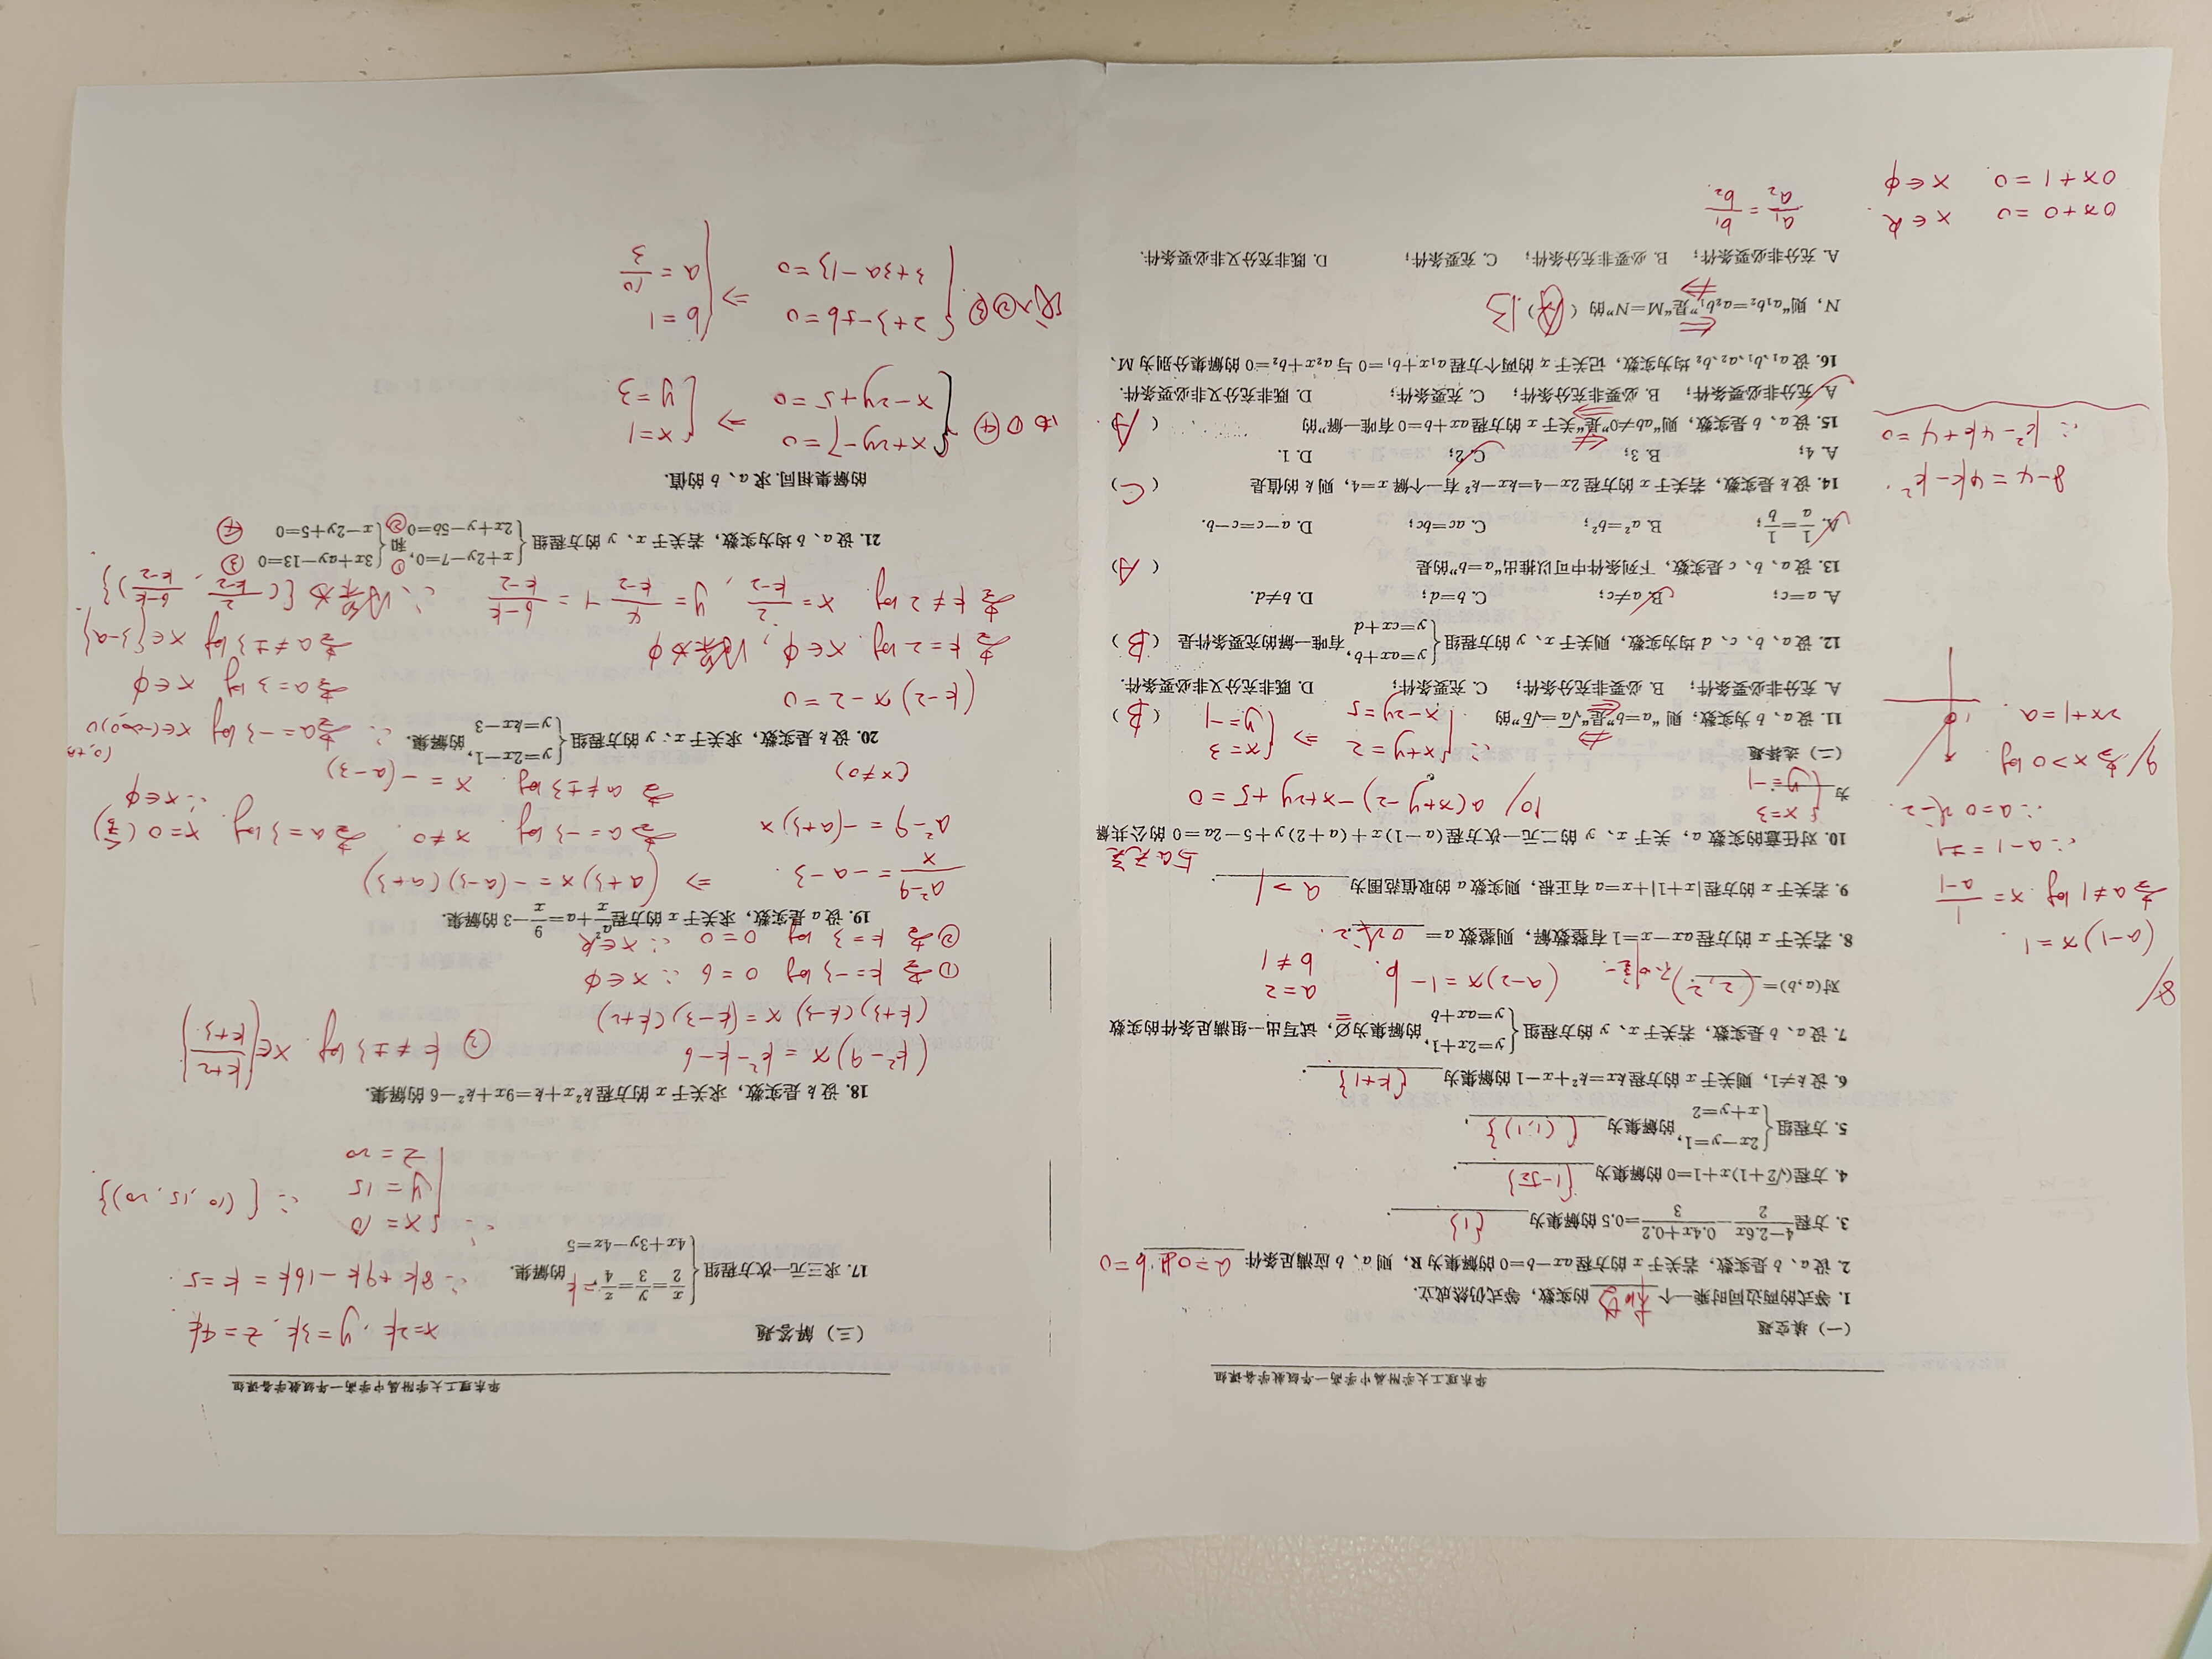 华东理工大学附属中学高一年级数学备课组
（一）填空题
1. 等式的两边同时乘一个 相同 的实数，等式仍然成立.
2. 设 a、b 是实数，若关于 x 的方程 ax－b=0 的解集为 R，则 a、b 应满足条件 a=0且b=0
3. 方程 (4－2.6x)/2 － (0.4x+0.2)/3 =0.5 的解集为 {1} .
4. 方程(√2+1)x+1=0 的解集为 {1-√2} .
5. 方程组 { 2x－y=1, x+y=2 的解集为 {(1,1)} .
6. 设 k≠1，则关于 x 的方程 kx=k²+x－1 的解集为 {k+1} .
7. 设 a、b 是实数，若关于 x、y 的方程组 { y=2x+1, y=ax+b 的解集为∅，试写出一组满足条件的实数
对(a,b)= (2,2) 不唯一
(a-2)x=1-b.
a=2
b≠1
8. 若关于 x 的方程 ax－x=1 有整数解，则整数 a= 0或2 .
8/
(a-1)x=1
若a≠1时 x=1/(a-1)
∴a-1=±1
∴a=0或2.
9. 若关于 x 的方程|x+1|+x=a 有正根，则实数 a 的取值范围为 a>1 .
9/ 若x>0时
2x+1=a.
10. 对任意的实数 a，关于 x、y 的二元一次方程(a－1)x+(a+2)y+5－2a=0 的公共解
与a无关
为 { x=3 y=-1 .
10/ a(x+y-2)-x+2y+5=0
∴ { x+y=2 x-2y=5 ⇒ { x=3 y=-1
（二）选择题
11. 设 a、b 为实数，则“a=b”是“√a=√b”的 （ B ）
A. 充分非必要条件； B. 必要非充分条件； C. 充要条件； D. 既非充分又非必要条件.
12. 设 a、b、c、d 均为实数，则关于 x、y 的方程组 { y=ax+b, y=cx+d 有唯一解的充要条件是 （ B ）
A. a=c； B. a≠c； C. b=d； D. b≠d.
13. 设 a、b、c 是实数，下列条件中可以推出“a=b”的是 （ A ）
A. 1/a=1/b； B. a²=b²； C. ac=bc； D. a－c=c－b.
14. 设 k 是实数，若关于 x 的方程 2x－4=kx－k² 有一个解 x=4，则 k 的值是 （ C ）
A. 4； B. 3； C. 2； D. 1.
8-4=4k-k².
∴k²-4k+4=0
15. 设 a、b 是实数，则“ab≠0”是“关于 x 的方程 ax+b=0 有唯一解”的 （ A ）
A. 充分非必要条件； B. 必要非充分条件； C. 充要条件； D. 既非充分又非必要条件.
16. 设 a₁、b₁、a₂、b₂ 均为实数，记关于 x 的两个方程 a₁x+b₁=0 与 a₂x+b₂=0 的解集分别为 M、
N，则“a₁b₂=a₂b₁”是“M=N”的 （ ） B
A. 充分非必要条件； B. 必要非充分条件； C. 充要条件； D. 既非充分又非必要条件.
a₁/a₂=b₁/b₂
0x+0=0 x∈R
0x+1=0 x∈∅
华东理工大学附属中学高一年级数学备课组
（三）解答题
x=2k, y=3k, z=4k
17. 求三元一次方程组 { x/2=y/3=z/4, =k 4x+3y－4z=5 的解集.
∴8k+9k-16k=k=5.
∴ { x=10 y=15 z=20 ∴{(10,15,20)}
18. 设 k 是实数，求关于 x 的方程 k²x+k=9x+k²－6 的解集.
(k²-9)x=k²-k-6
(k+3)(k-3)x=(k-3)(k+2)
① 若k=-3时 0=6 ∴x∈∅
② 若k=3时 0=0 ∴x∈R
③ k≠±3时 x∈{(k+2)/(k+3)}
19. 设 a 是实数，求关于 x 的方程 a²/x+a=9/x－3 的解集.
(a²-9)/x=-a-3. ⇒ (a+3)x=-(a-3)(a+3)
a²-9=-(a+3)x
(x≠0)
若a=-3时 x≠0. 若a=3时. x=0(舍)
∴x∈∅
若a≠±3时 x=-(a-3)
∴若a=-3时 x∈(-∞,0)∪(0,+∞)
若a=3时 x∈∅
若a≠±3时 x∈{3-a}
20. 设 k 是实数，求关于 x、y 的方程组 { y=2x－1, y=kx－3 的解集.
(k-2)x-2=0
若k=2时. x∈∅, 解集为∅
若k≠2时 x=2/(k-2), y=4/(k-2)-1=(6-k)/(k-2) ∴解集为{(2/(k-2), (6-k)/(k-2))}
21. 设 a、b 均为实数，若关于 x、y 的方程组 { x+2y－7=0,① 2x+y－5b=0② 和 { 3x+ay－13=0③ x－2y+5=0④
的解集相同. 求 a、b 的值.
由①④ { x+2y-7=0 x-2y+5=0 ⇒ { x=1 y=3
代入②③ { 2+3-5b=0 3+3a-13=0 ⇒ { b=1 a=10/3